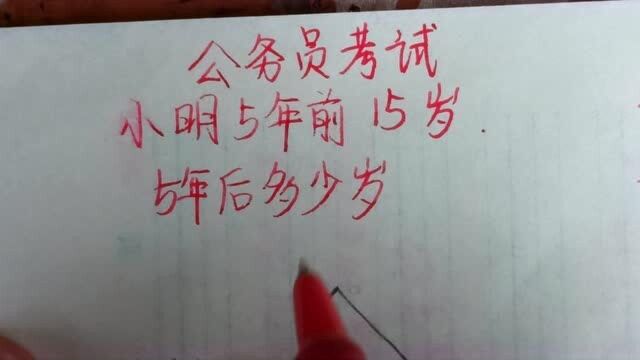 公务员考试
小明5年前15岁.
5年后多少岁